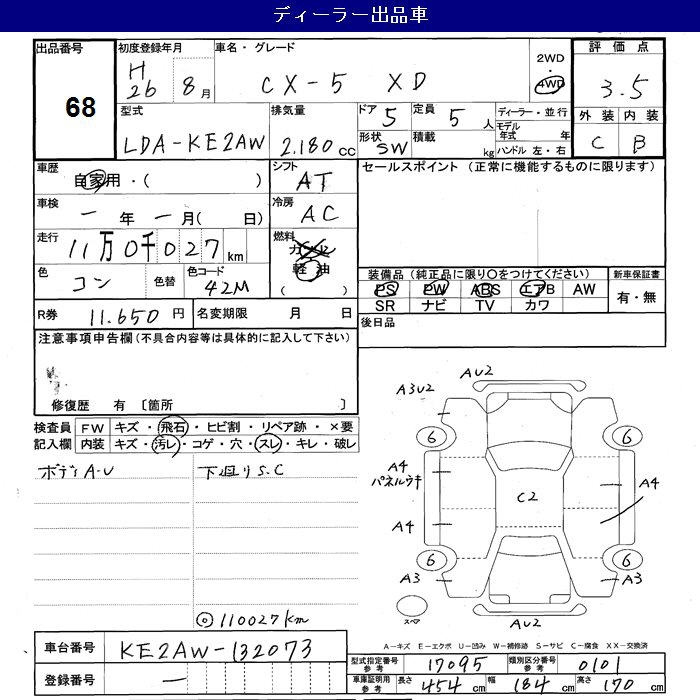 ディーラー出品車
出品番号 68
初度登録年月 H26 8月
車名・グレード CX-5 XD
2WD 4WD
評価点 3.5
外装 内装
C B
型式 LDA-KE2AW
排気量 2.180cc
ドア 5
定員 5人
形状 SW
積載 kg
ディーラー・並行
モデル年式 年
ハンドル 左・右
車歴 自家用・( )
シフト AT
セールスポイント (正常に機能するものに限ります)
車検 一年一月( 日)
冷房 AC
走行 11万0千027km
燃料 ガソリン
軽油
( )
色 コン 色替 色コード 42M
装備品(純正品に限り○をつけてください)
新車保証書 有・無
PS PW ABS エアB AW
SR ナビ TV カワ
R券 11.650円 名変期限 月 日
後日品
注意事項申告欄(不具合内容等は具体的に記入して下さい)
修復歴 有 〔箇所 〕
検査員記入欄
FW キズ・飛石・ヒビ割・リペア跡・×要
内装 キズ・汚レ・コゲ・穴・スレ・キレ・破レ
ボデイA-U 下廻りS.C
◎110027km
AU2
A3U2
6 6
A4
パネルウキ
C2
A4
A4
6 6
A3 A3
スペア
AU2
A-キズ E-エクボ U-凹み W-補修跡 S-サビ C-腐食 XX-交換済
車台番号 KE2AW-132073
登録番号 一
型式指定番号参考 17095 類別区分番号参考 0101
車庫証明用参考 長さ 454cm 幅 184cm 高さ 170cm